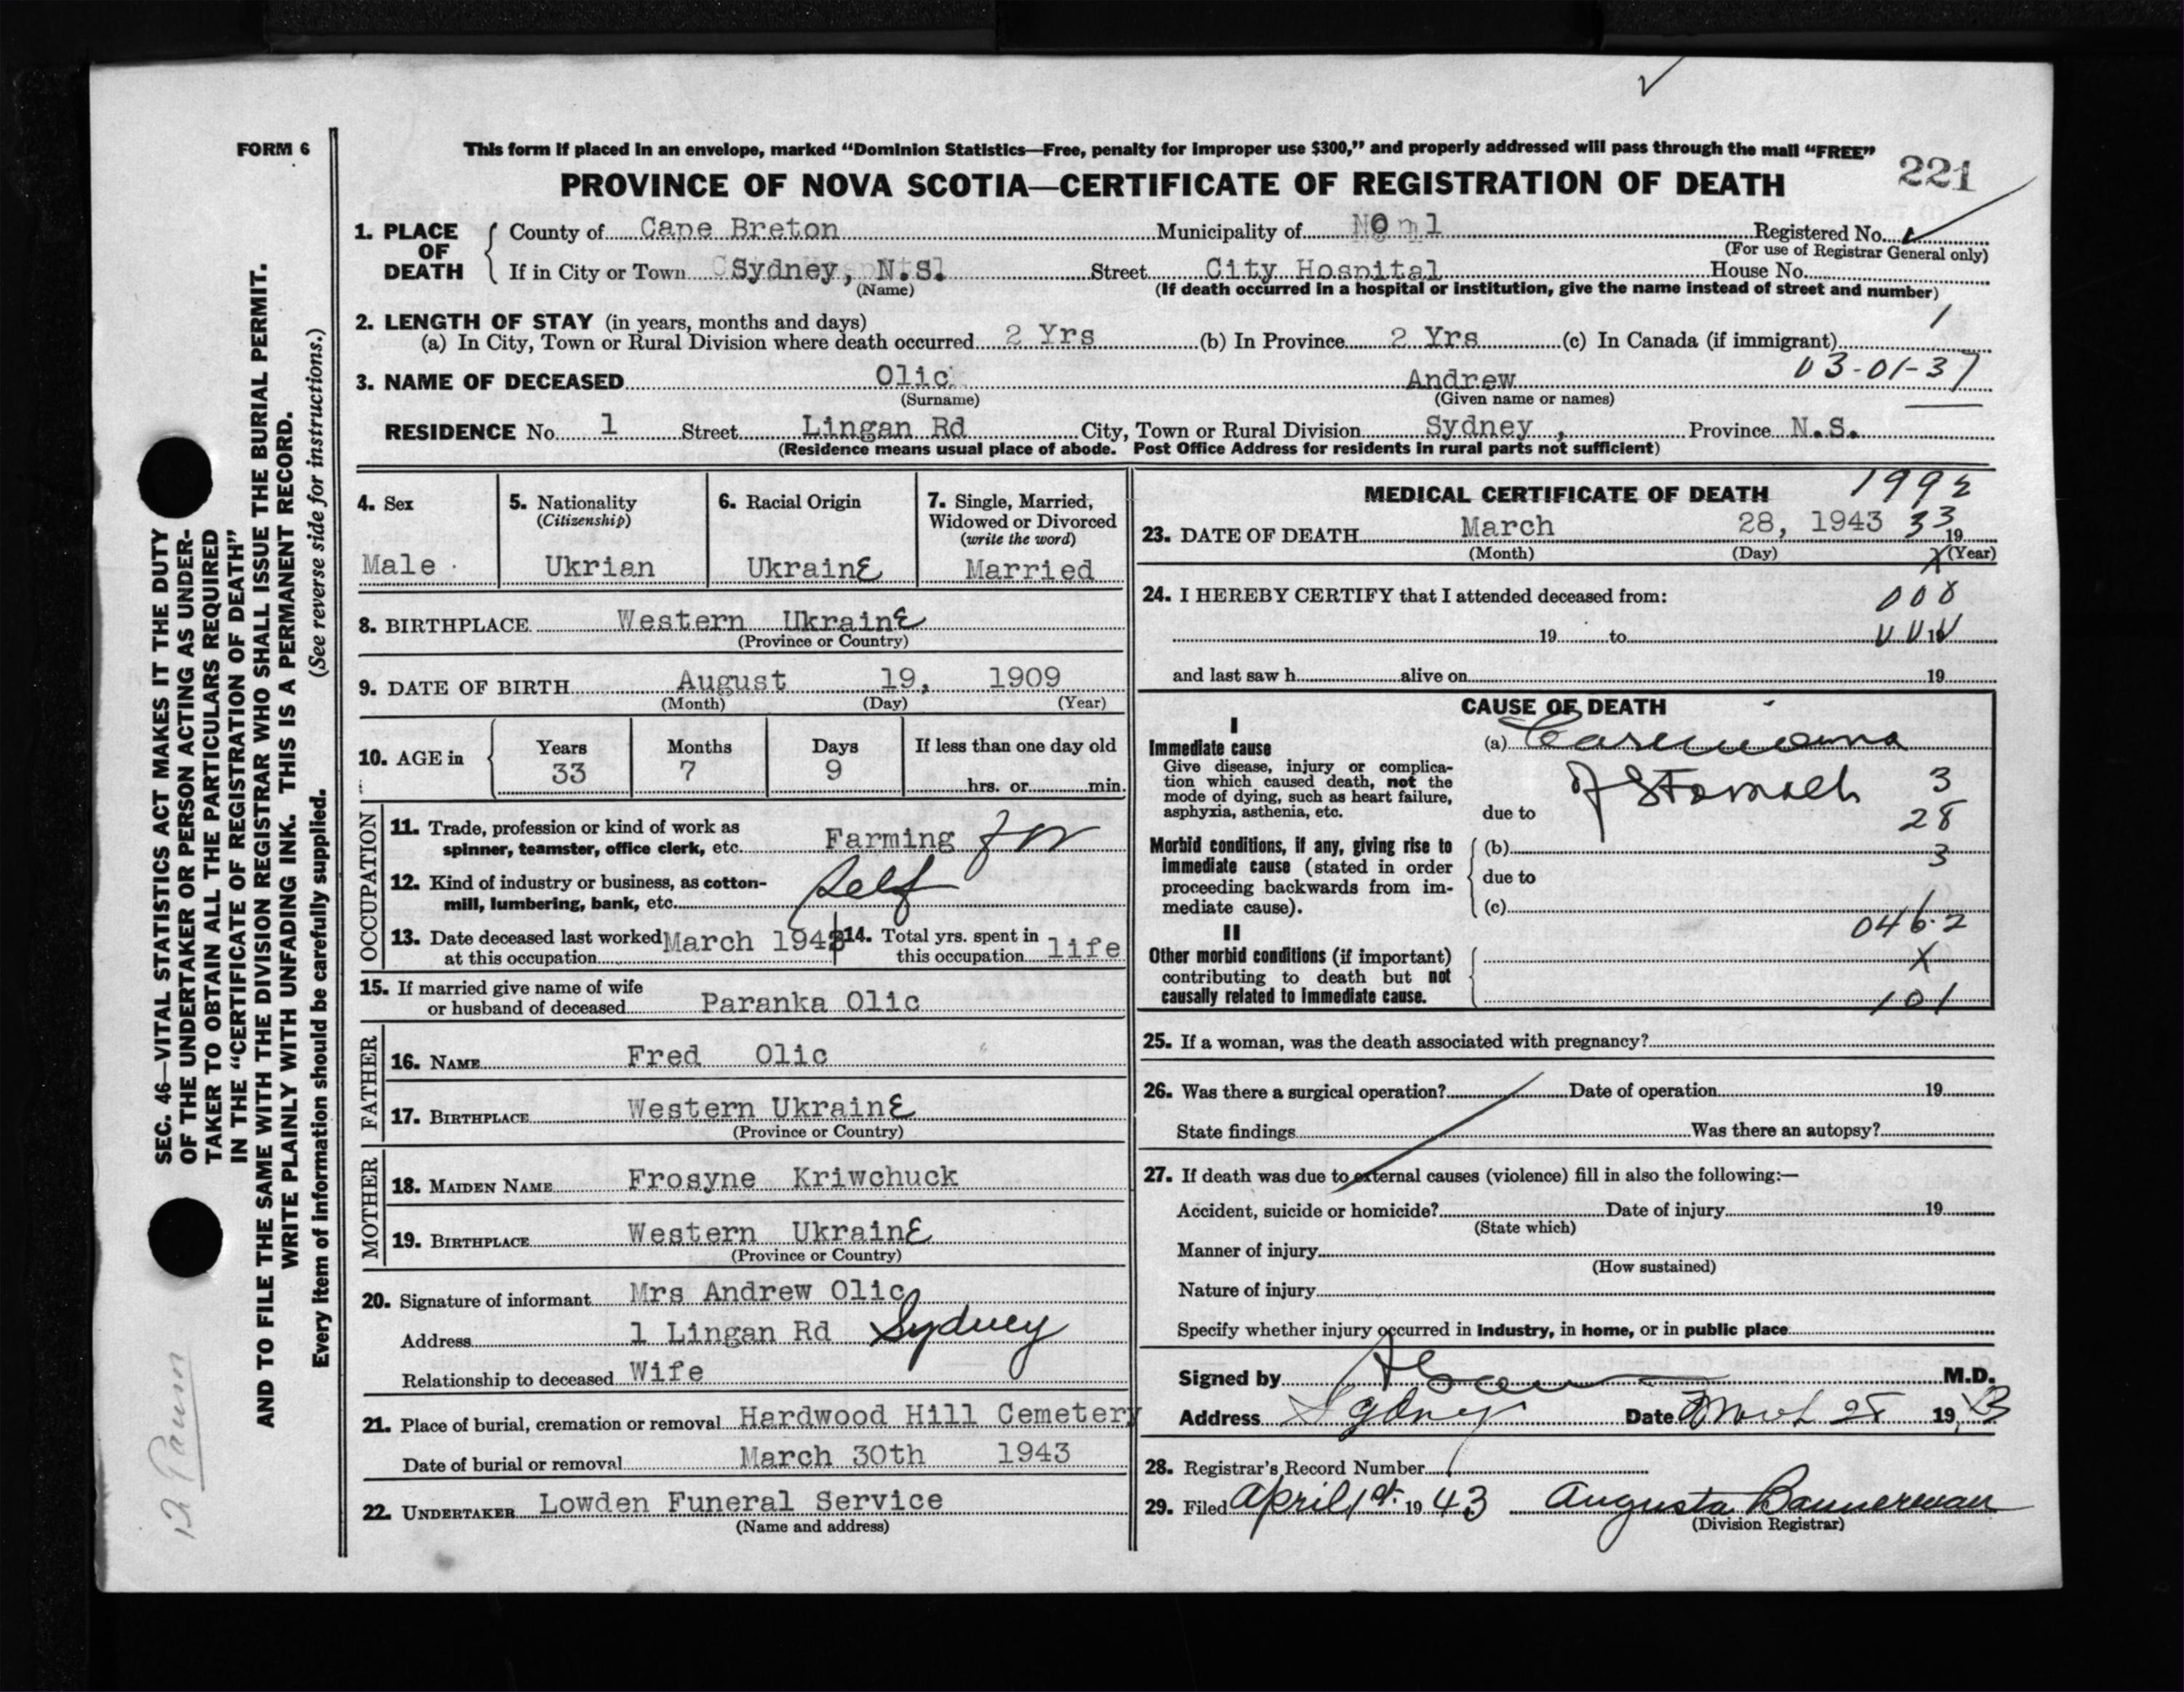 FORM 6
This form if placed in an envelope, marked “Dominion Statistics—Free, penalty for improper use $300,” and properly addressed will pass through the mail “FREE”
221
PROVINCE OF NOVA SCOTIA—CERTIFICATE OF REGISTRATION OF DEATH
1. PLACE OF DEATH
County of Cape Breton Municipality of Registered No.
(For use of Registrar General only)
If in City or Town Sydney, N.S. Street City Hospital House No.
(Name) (If death occurred in a hospital or institution, give the name instead of street and number)
2. LENGTH OF STAY (in years, months and days)
(a) In City, Town or Rural Division where death occurred 2 Yrs (b) In Province 2 Yrs (c) In Canada (if immigrant)
03-01-37
3. NAME OF DECEASED Olic Andrew
(Surname) (Given name or names)
RESIDENCE No. 1 Street Lingan Rd City, Town or Rural Division Sydney , Province N.S.
(Residence means usual place of abode. Post Office Address for residents in rural parts not sufficient)
4. Sex
Male
5. Nationality
(Citizenship)
Ukrian
6. Racial Origin
UkrainE
7. Single, Married,
Widowed or Divorced
(write the word)
Married
8. BIRTHPLACE Western UkrainE
(Province or Country)
9. DATE OF BIRTH August 19, 1909
(Month) (Day) (Year)
10. AGE in Years Months Days If less than one day old
33 7 9 hrs. or min.
OCCUPATION
11. Trade, profession or kind of work as
spinner, teamster, office clerk, etc. Farming for
12. Kind of industry or business, as cotton-
mill, lumbering, bank, etc. self
13. Date deceased last worked
at this occupation March 1943
14. Total yrs. spent in
this occupation life
15. If married give name of wife
or husband of deceased Paranka Olic
FATHER
16. NAME Fred Olic
17. BIRTHPLACE Western UkrainE
(Province or Country)
MOTHER
18. MAIDEN NAME Frosyne Kriwchuck
19. BIRTHPLACE Western UkrainE
(Province or Country)
20. Signature of informant Mrs Andrew Olic
Address 1 Lingan Rd Sydney
Relationship to deceased Wife
21. Place of burial, cremation or removal Hardwood Hill Cemetery
Date of burial or removal March 30th 1943
22. UNDERTAKER Lowden Funeral Service
(Name and address)
MEDICAL CERTIFICATE OF DEATH
1992
23. DATE OF DEATH March 28, 1943 33 19
(Month) (Day) (Year)
24. I HEREBY CERTIFY that I attended deceased from:
19 to 19
and last saw h alive on 19
CAUSE OF DEATH
I
Immediate cause
Give disease, injury or complica-
tion which caused death, not the
mode of dying, such as heart failure,
asphyxia, asthenia, etc.
(a) Carcinoma
of Stomach 3
due to 28
Morbid conditions, if any, giving rise to
immediate cause (stated in order
proceeding backwards from im-
mediate cause).
(b) 3
due to
(c)
046.2
II
Other morbid conditions (if important)
contributing to death but not
causally related to immediate cause.
X
101
25. If a woman, was the death associated with pregnancy?
26. Was there a surgical operation? Date of operation 19
State findings Was there an autopsy?
27. If death was due to external causes (violence) fill in also the following:—
Accident, suicide or homicide? Date of injury 19
(State which)
Manner of injury
(How sustained)
Nature of injury
Specify whether injury occurred in industry, in home, or in public place
Signed by M.D.
Address Sydney Date March 28 1943
28. Registrar's Record Number
29. Filed April 1st. 1943 Augusta Bannerman
(Division Registrar)
SEC. 46—VITAL STATISTICS ACT MAKES IT THE DUTY
OF THE UNDERTAKER OR PERSON ACTING AS UNDER-
TAKER TO OBTAIN ALL THE PARTICULARS REQUIRED
IN THE “CERTIFICATE OF REGISTRATION OF DEATH”
AND TO FILE THE SAME WITH THE DIVISION REGISTRAR WHO SHALL ISSUE THE BURIAL PERMIT.
WRITE PLAINLY WITH UNFADING INK. THIS IS A PERMANENT RECORD.
Every item of information should be carefully supplied. (See reverse side for instructions.)